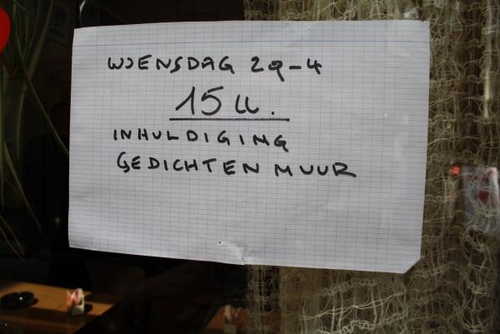 WOENSDAG 29-4
15 u.
INHULDIGING
GEDICHTEN MUUR